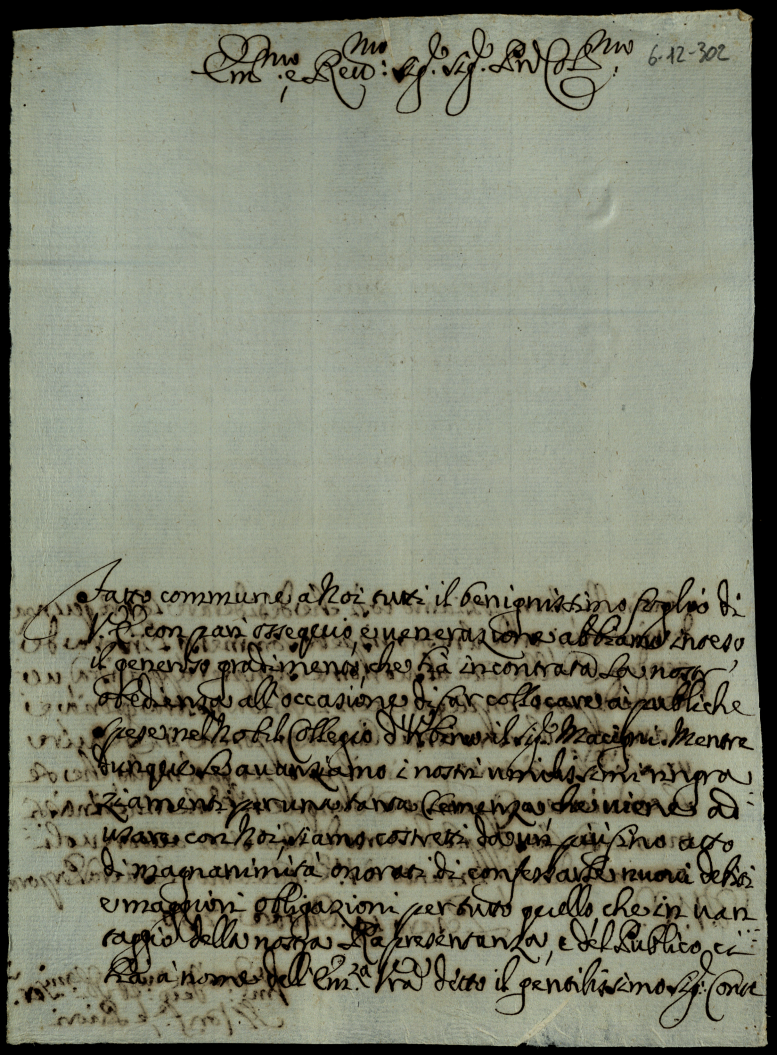 Em.mo e Reu.mo Sig.r Sig.r Prõn Col.mo
6-12-302
Fatto commune à Noi tutti il benignissimo foglio di
V. E. con pari ossequio, e uenerazione abbiamo inteso
il generoso gradimento, che hà incontrato la nostr'
obedienza all'occasione di far collocare à publiche
spese nel Nobil Collegio d'Urbino il Sig.r Macigni. Mentre
dunque Le auanziamo i nostri umilissimi ringra
ziamenti per una tanta Clemenza che uiene ad
usare con Noi, siamo costretti da un' purissimo atto
di magnanimità onorati di confessarLe nuoui debiti
e maggiori obligazioni per tutto quello che in uan
taggio della nostra Rapresentanza, e del Publico ci
hà à nome dell'Em.za Vra detto il gentilissimo Sig.r Conte